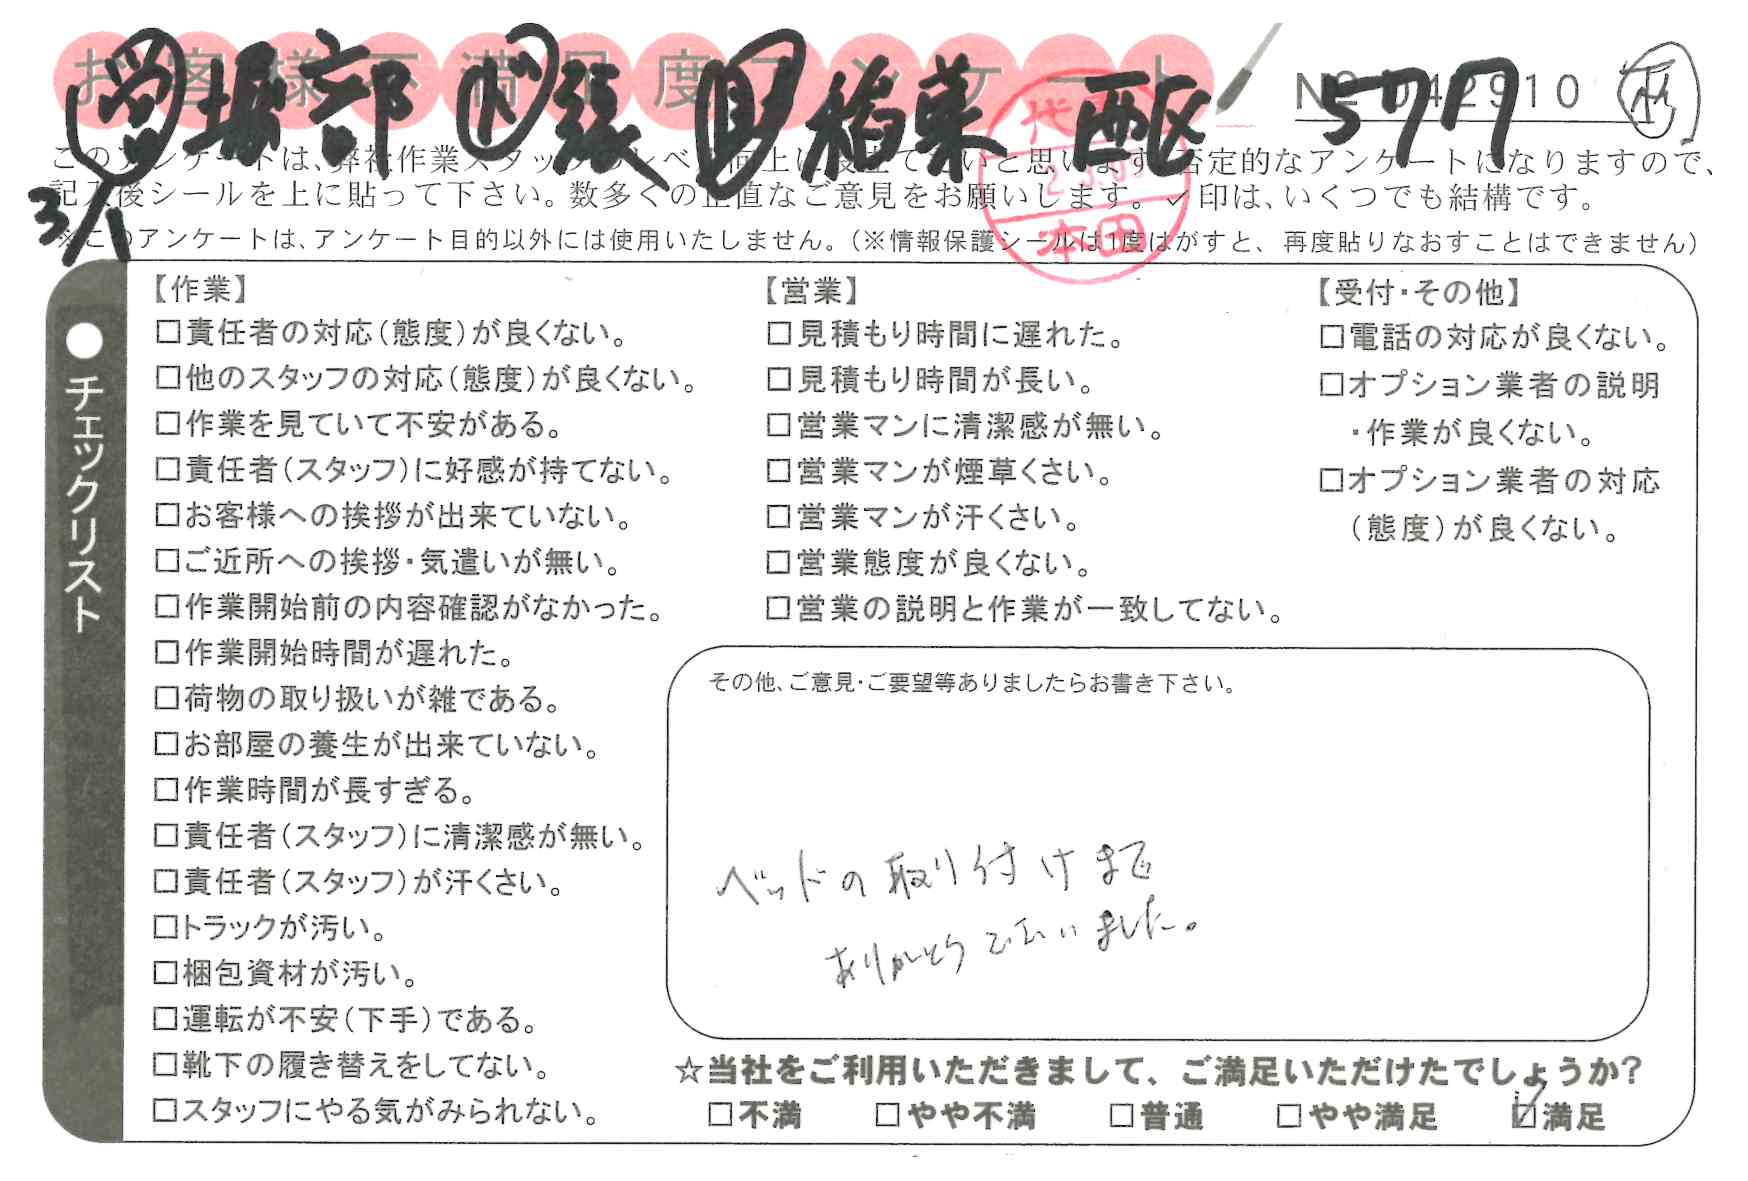 お客様不満足度アンケート
堀部 張 稲葉 西区 577
3/1
代
本田
このアンケートは、弊社作業スタッフのレベル向上に役立てたいと思います。否定的なアンケートになりますので、
記入後シールを上に貼って下さい。数多くの正直なご意見をお願いします。✓印は、いくつでも結構です。
※このアンケートは、アンケート目的以外には使用いたしません。(※情報保護シールは1度はがすと、再度貼りなおすことはできません)
●チェックリスト
【作業】
□責任者の対応(態度)が良くない。
□他のスタッフの対応(態度)が良くない。
□作業を見ていて不安がある。
□責任者(スタッフ)に好感が持てない。
□お客様への挨拶が出来ていない。
□ご近所への挨拶・気遣いが無い。
□作業開始前の内容確認がなかった。
□作業開始時間が遅れた。
□荷物の取り扱いが雑である。
□お部屋の養生が出来ていない。
□作業時間が長すぎる。
□責任者(スタッフ)に清潔感が無い。
□責任者(スタッフ)が汗くさい。
□トラックが汚い。
□梱包資材が汚い。
□運転が不安(下手)である。
□靴下の履き替えをしてない。
□スタッフにやる気がみられない。
【営業】
□見積もり時間に遅れた。
□見積もり時間が長い。
□営業マンに清潔感が無い。
□営業マンが煙草くさい。
□営業マンが汗くさい。
□営業態度が良くない。
□営業の説明と作業が一致してない。
【受付・その他】
□電話の対応が良くない。
□オプション業者の説明
・作業が良くない。
□オプション業者の対応
(態度)が良くない。
その他、ご意見・ご要望等ありましたらお書き下さい。
ベッドの取り付けまで
ありがとうございました。
☆当社をご利用いただきまして、ご満足いただけたでしょうか?
□不満 □やや不満 □普通 □やや満足 ☑満足